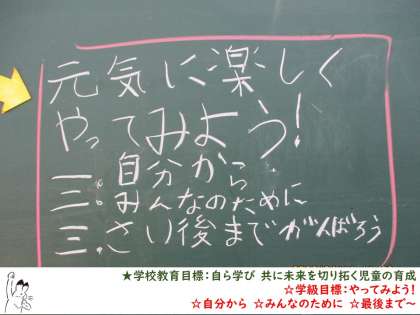 元気に楽しく
やってみよう!
一.自分から
二.みんなのために
三.さい後までがんばろう
★学校教育目標:自ら学び 共に未来を切り拓く児童の育成
☆学級目標:やってみよう!
☆自分から ☆みんなのために ☆最後まで～